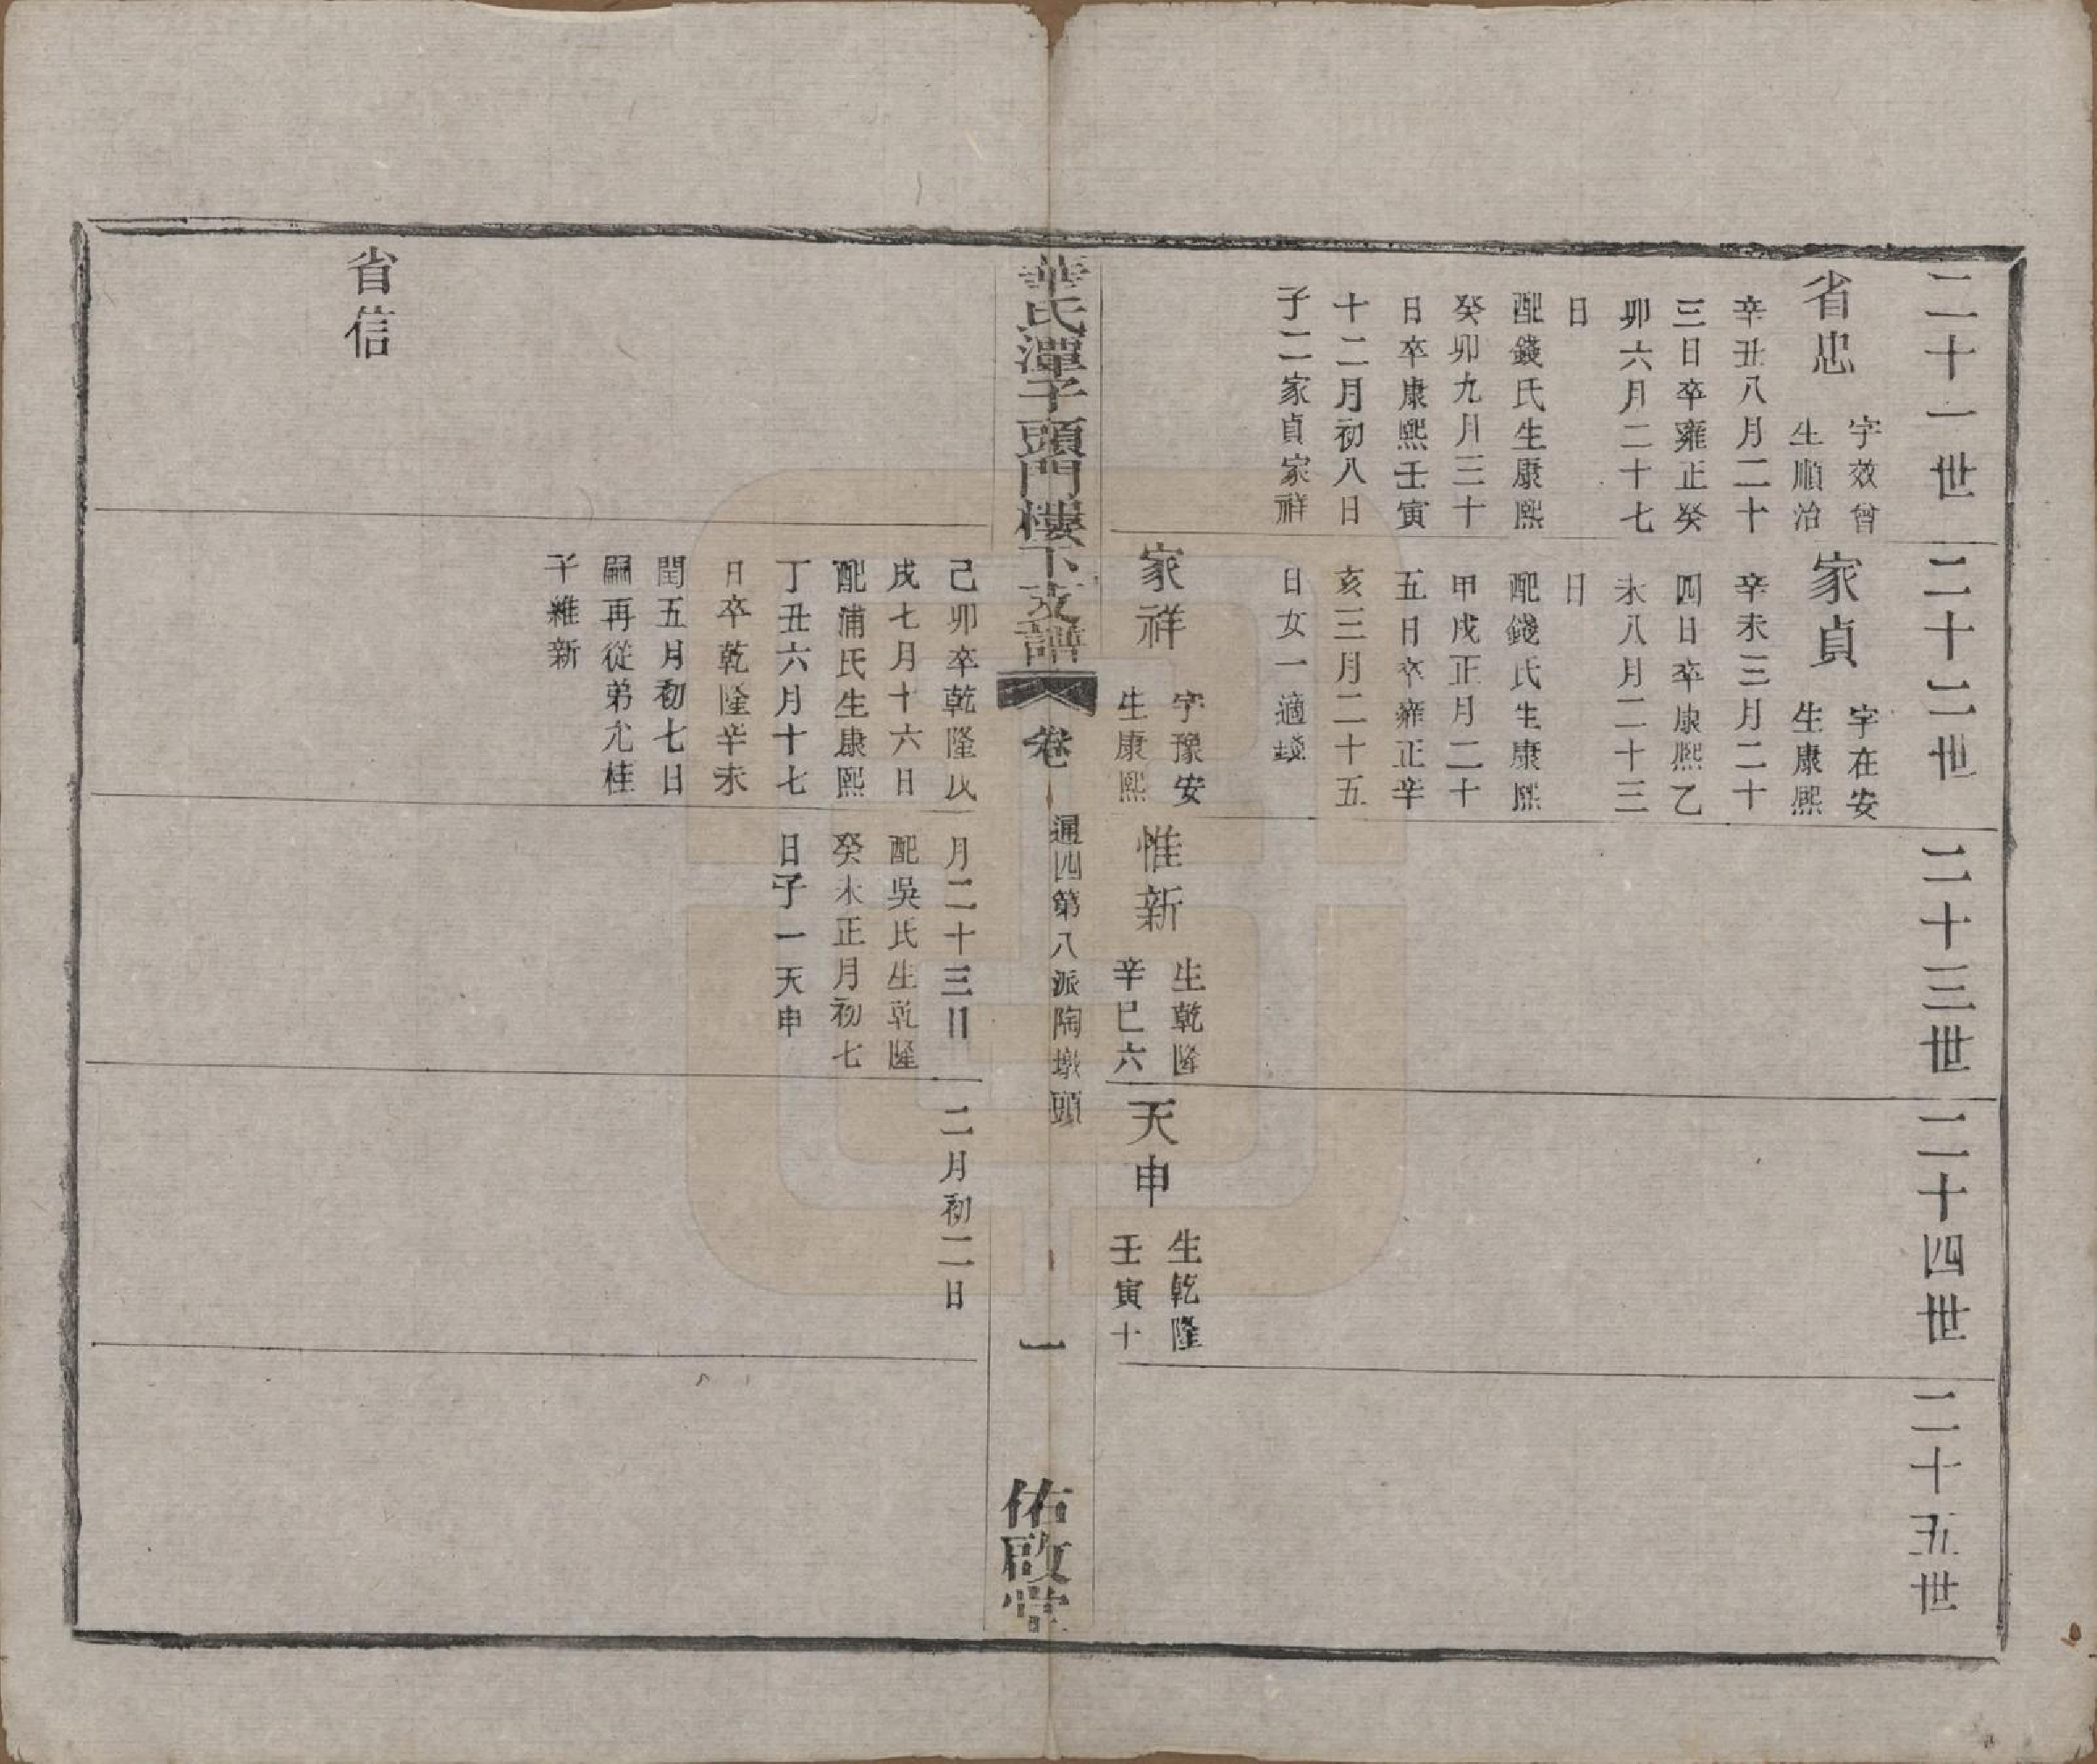 二十一世
省忠
字效曾
生順治
辛丑八月二十
三日卒雍正癸
卯六月二十七
日
配錢氏生康熙
癸卯九月三十
日卒康熙壬寅
十二月初八日
子二家貞家祥
二十二世
家貞
字在安
生康熙
辛未三月二十
四日卒康熙乙
未八月二十三
日
配錢氏生康熙
甲戌正月二十
五日卒雍正辛
亥三月二十五
日女一適錢
家祥
字豫安
生康熙
二十三世
惟新
生乾隆
辛巳六
二十四世
天申
生乾隆
壬寅十
二十五世
華氏潭子頭門樓下支譜
卷
通四第八派陶墩頭
一
佑啟堂
省信
己卯卒乾隆戊
戌七月十六日
配浦氏生康熙
丁丑六月十七
日卒乾隆辛未
閏五月初七日
嗣再從弟允桂
子維新
月二十三日
配吳氏生乾隆
癸未正月初七
日子一天申
二月初二日